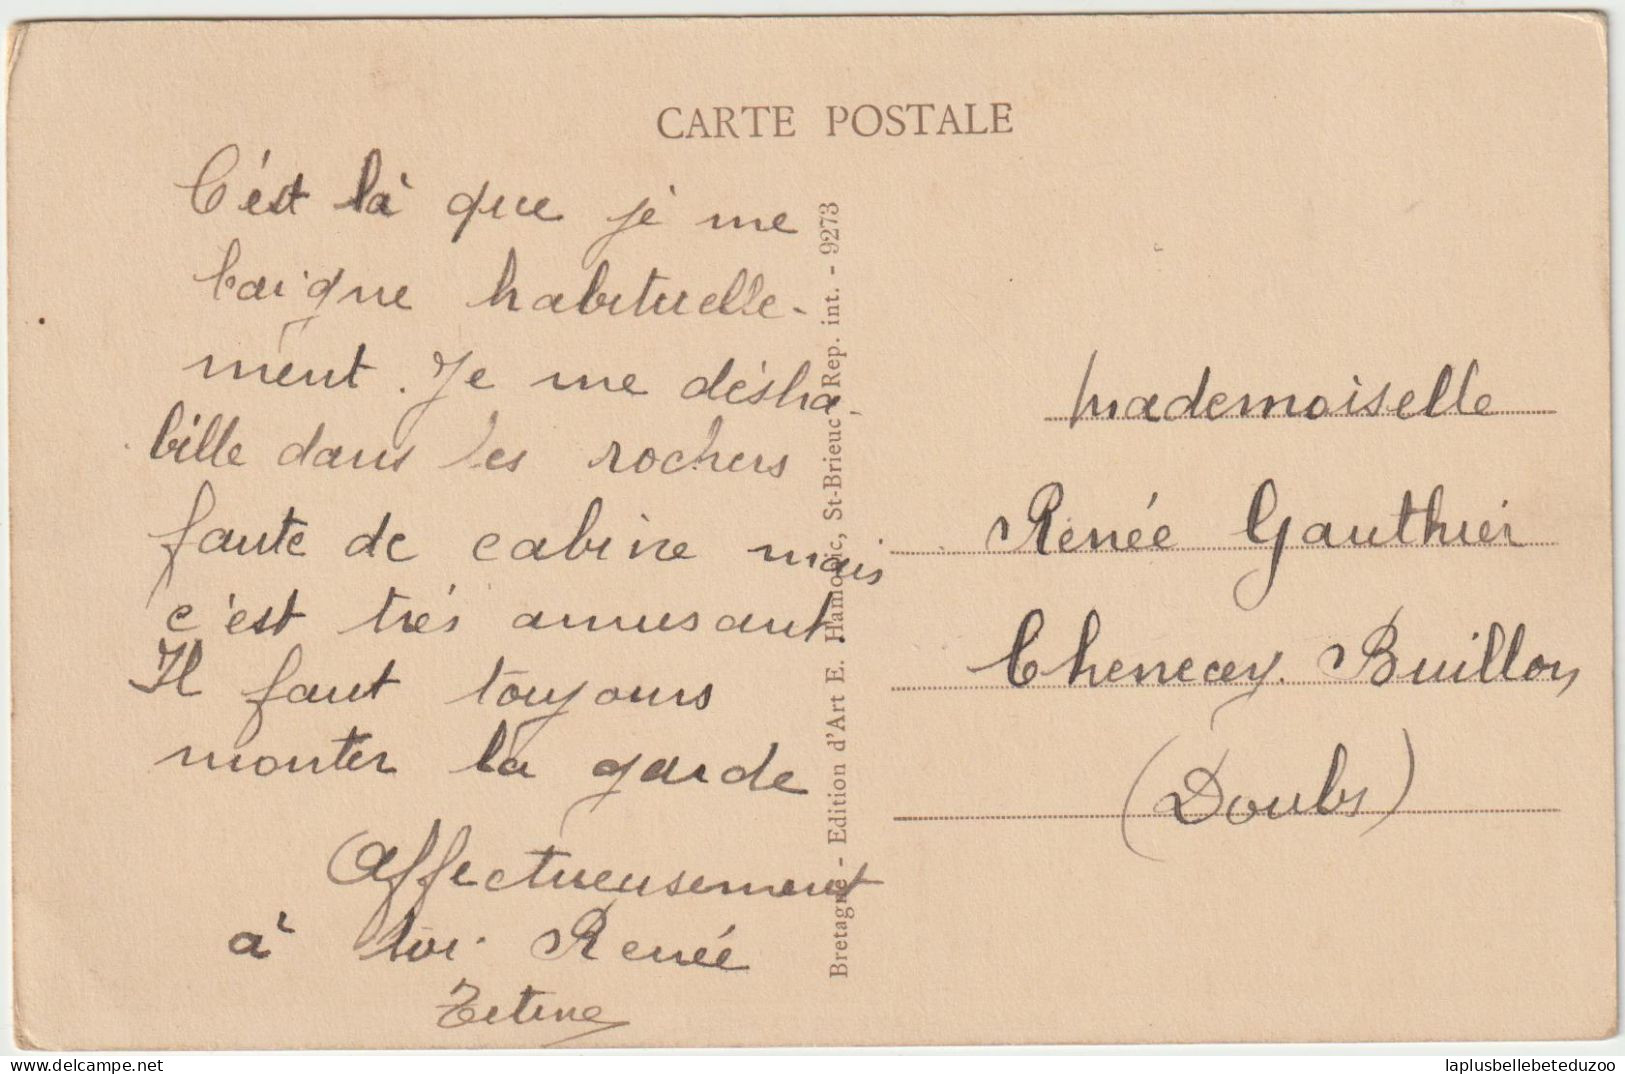 CARTE POSTALE
C'est là que je me
baigne habituelle-
ment. Je me désha-
bille dans les rochers
faute de cabine mais
c'est très amusant.
Il faut toujours
monter la garde
Affectueusement
à toi Renée
Titine
Bretagne - Edition d'Art E. Hamonic, St-Brieuc Rep. int. - 9273
Mademoiselle
Renée Gauthier
Chenecey. Buillon
(Doubs)
laplusbellebeteduzoo